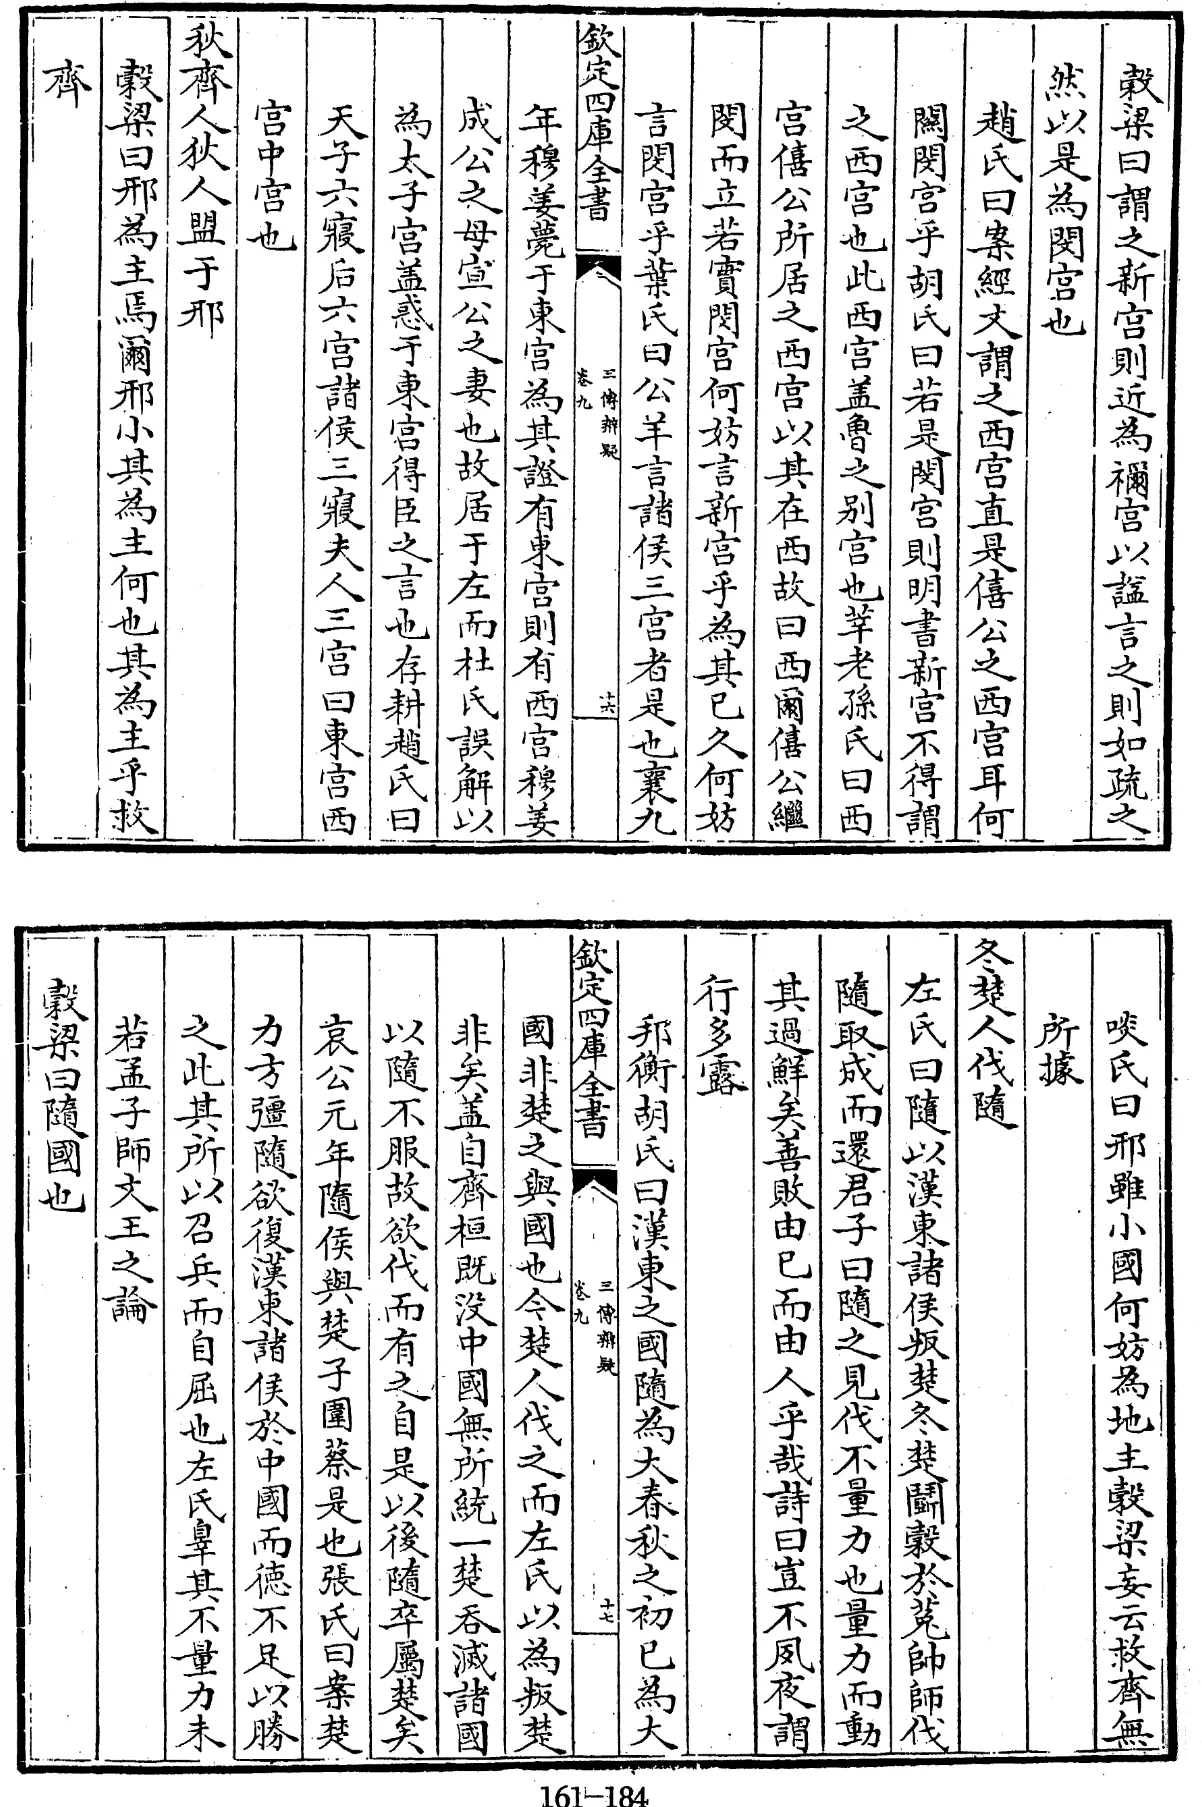 穀梁曰謂之新宫則近為禰宫以謚言之則如疏之
然以是為閔宫也
趙氏曰案經文謂之西宫直是僖公之西宫耳何
關閔宫乎胡氏曰若是閔宫則明書新宫不得謂
之西宫也此西宫盖魯之别宫也莘老孫氏曰西
宫僖公所居之西宫以其在西故曰西爾僖公繼
閔而立若實閔宫何妨言新宫乎為其已久何妨
言閔宫乎葉氏曰公羊言諸侯三宫者是也襄九
欽定四庫全書
三傳辨疑
卷九
十六
年穆姜薨于東宫為其證有東宫則有西宫穆姜
成公之母宣公之妻也故居于左而杜氏誤解以
為太子宫盖惑于東宫得臣之言也存耕趙氏曰
天子六寢后六宫諸侯三寢夫人三宫曰東宫西
宫中宫也
秋齊人狄人盟于邢
穀梁曰邢為主焉爾邢小其為主何也其為主乎救
齊
啖氏曰邢雖小國何妨為地主穀梁妄云救齊無
所據
冬楚人伐隨
左氏曰隨以漢東諸侯叛楚冬楚鬭穀於菟帥師伐
隨取成而還君子曰隨之見伐不量力也量力而動
其過鮮矣善敗由已而由人乎哉詩曰豈不夙夜謂
行多露
邦衡胡氏曰漢東之國隨為大春秋之初已為大
欽定四庫全書
三傳辨疑
卷九
十七
國非楚之與國也今楚人伐之而左氏以為叛楚
非矣盖自齊桓既没中國無所統一楚吞滅諸國
以隨不服故欲伐而有之自是以後隨卒屬楚矣
哀公元年隨侯與楚子圍蔡是也張氏曰案楚
力方彊隨欲復漢東諸侯於中國而徳不足以勝
之此其所以召兵而自屈也左氏辠其不量力未
若孟子師文王之論
穀梁曰隨國也
161-184